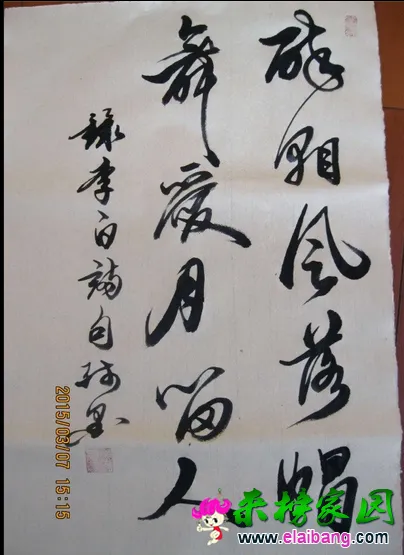 醉看风落帽
舞愛月留人
録李白詩句
2015/03/07 15:15
来榜家园
www.elaibang.com